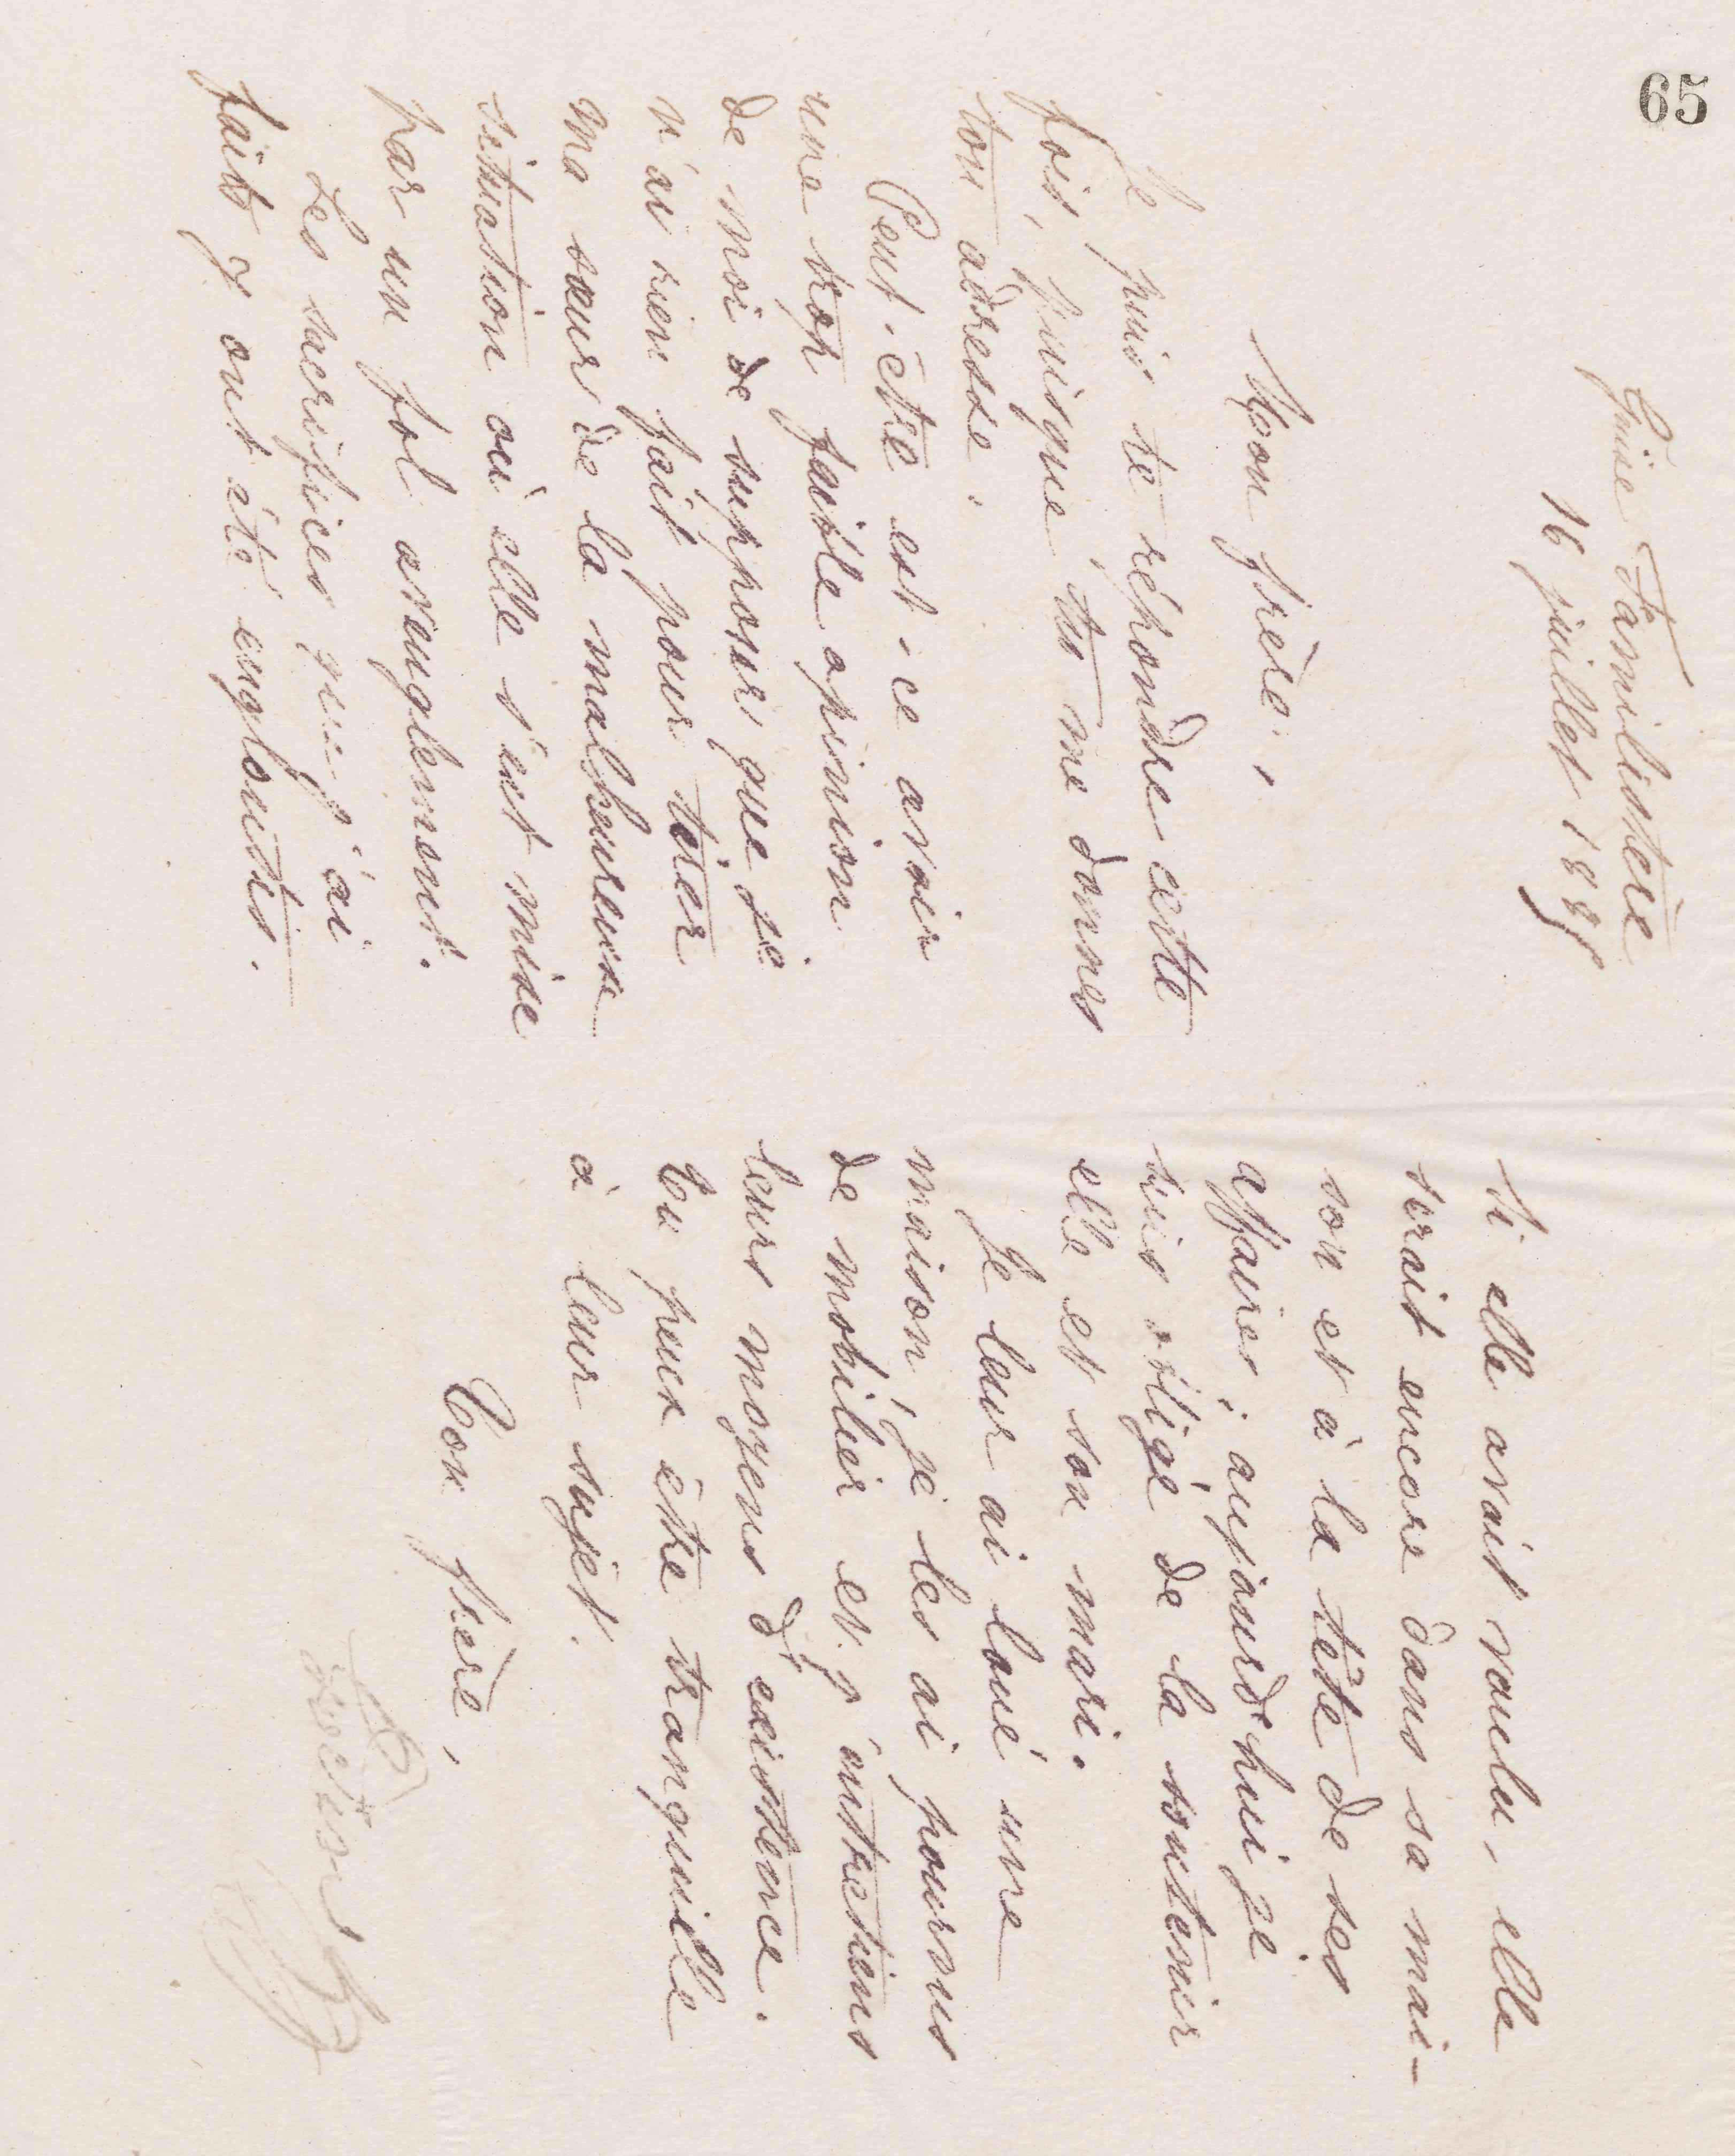 65
Guise Familistère
16 juillet 1885
Mon frère,
Je puis te répondre cette
fois, puisque tu me donnes
ton adresse.
Peut-être est-ce avoir
une trop faible opinion
de moi de supposer que je
n'ai rien fait pour tirer
ma sœur de la malheureuse
situation où elle s'est mise
par un fol aveuglement.
Les sacrifices que j'ai
faits y ont été engloutis.
Si elle avait voulu, elle
serait encore dans sa mai-
son et à la tête de ses
affaires ; aujourd'hui je
suis obligé de la soutenir
elle et son mari.
Je leur ai loué une
maison, je les ai pourvus
de mobilier et j'entretiens
leurs moyens d'existence.
Tu peux être tranquille
à leur sujet.
Ton frère,